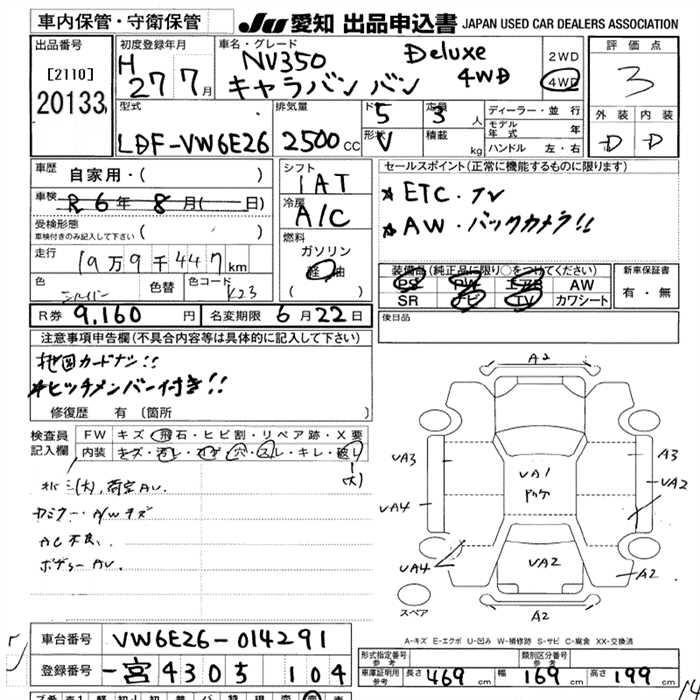 車内保管・守衛保管
JU 愛知 出品申込書 JAPAN USED CAR DEALERS ASSOCIATION
出品番号
[2110]
20133
初度登録年月
H 27 7月
車名・グレード
NV350 Deluxe
キャラバン バン 4WD
2WD
4WD
評価点
3
外装 内装
D D
型式
LDF-VW6E26
排気量
2500 CC
ドア
5
形状
V
定員
3 人
積載 kg
ディーラー・並行
モデル年式 年
ハンドル 左・右
車歴
自家用・( )
車検
R6年8月( 日)
受検形態
車検付きのみ記入して下さい ( )
走行
19万9千447km
色
シルバー
色替
色コード
K23
シフト
IAT
冷房
A/C
燃料
ガソリン
軽油
( )
セールスポイント(正常に機能するものに限ります)
★ETC・TV
★AW・バックカメラ!!
装備品(純正品に限り○をつけてください)
PS PW エアB AW
SR ナビ TV カワシート
新車保証書
有・無
後日品
R券 9,160円
名変期限 6月22日
注意事項申告欄(不具合内容等は具体的に記入して下さい)
地図カードナシ!!
★ヒッチメンバー付き!!
修復歴 有 (箇所 )
検査員記入欄
FW キズ・飛石・ヒビ割・リペア跡・X要
内装 キズ・汚レ・コゲ・穴・スレ・キレ・破レ
(大)
荷室AU.
A/Wキズ
AC不良.
ボディーAU.
A2
UA3
A3
UA1
UA2
UA4
UA4
UA2
A2
A2
スペア
A-キズ E-エクボ U-凹み W-補修跡 S-サビ C-腐食 XX-交換済
車台番号 VW6E26-014291
登録番号 一宮 430 す 104
形式指定番号 参考
類別区分番号 参考
車庫証明用 参考
長さ 469 cm 幅 169 cm 高さ 199 cm